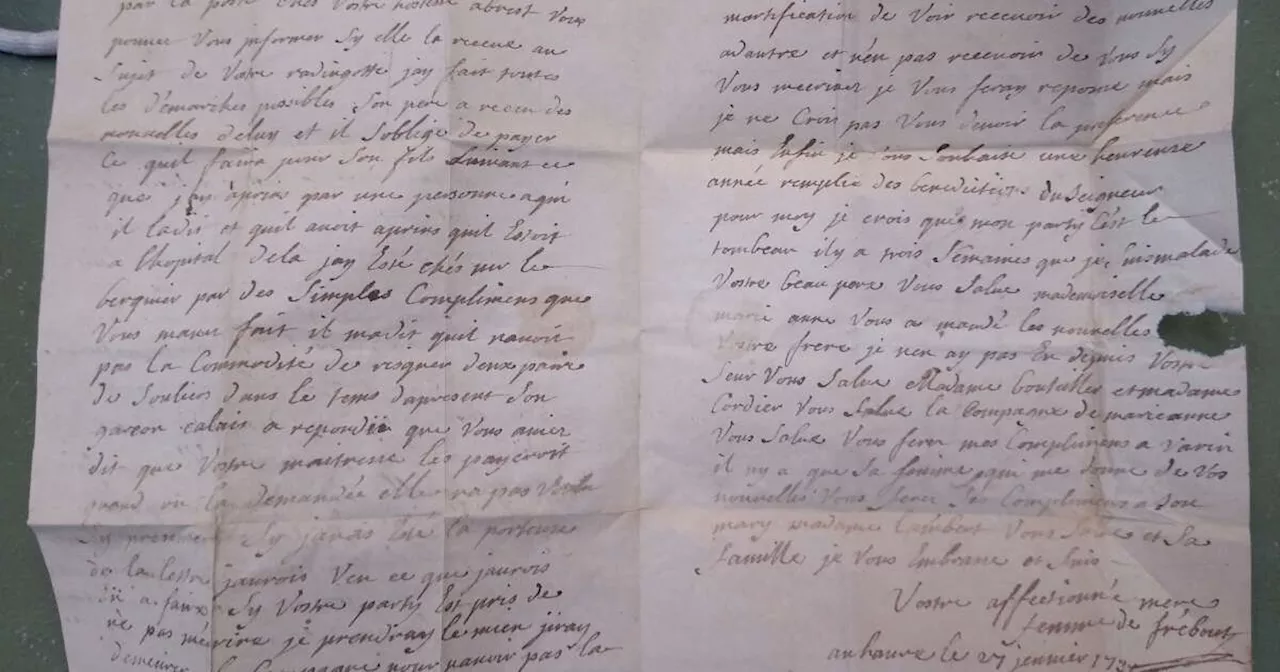 par la poste chés Vostre hostesse abrest Vous
pouuez Vous jnformer Sy elle la receue au
Sujet de Vostre radingotte jay fait toutes
les demarches possibles Son pere a receu des
nouuelles deluy et il Soblige de payer
Ce quil faira pour Son fils Suiuant ce
que j'ay apris par une personne aqui
il ladis et quil auoit apris quil Estoit
a lhopital dela jay Esté chés mr le
berquier par des Simples Complimens que
Vous maues fait il madit quil nauoit
pas la Commodité de risquer deux paire
de Souliers dans le tems dapresent Son
garcon calais a repondu que Vous auiez
dit que Vostre maitresse les payeroit
quand on la demandée elle na pas Voulu
Sy jauais Esté la porteuse
de la lettre jaurois Veu ce que jaurois
a faire Sy Vostre party Est pris de
ne pas mecrire je prendray le mien jiray
demeurer nour nauoir pas la
mortification de Voir receuoir des nouuelles
adautre et nen pas receuoir de Vous Sy
Vous mecriuez je Vous feray reponse mais
je ne Crois pas Vous deuoir la preference
mais Enfin je Vous Souhaite une heureuse
année remplie des benedictions du Seigneur
pour moy je crois que mon party C'est le
tombeau il y a trois Semaines que je suis malade
Vostre beau pere Vous Salue mademoiselle
marie anne Vous a mandé les nouuelles
Vostre frere je nen ay pas Eu depuis Vostre
Seur Vous Salue Madame Coutuillier et madame
Cordier Vous Salue la Compagne de marieanne
Vous Salue Vous ferez mes Complimens a Varin
il ny a que Sa femme qui me donne de Vos
nouuelles Vous ferez Ses Complimens a Son
mary madame Lambert Vous Salue et Sa
famille je Vous Embrasse et Suis
Vostre affectionné mere
femme de frébourg
auhaure le 27 jenuier